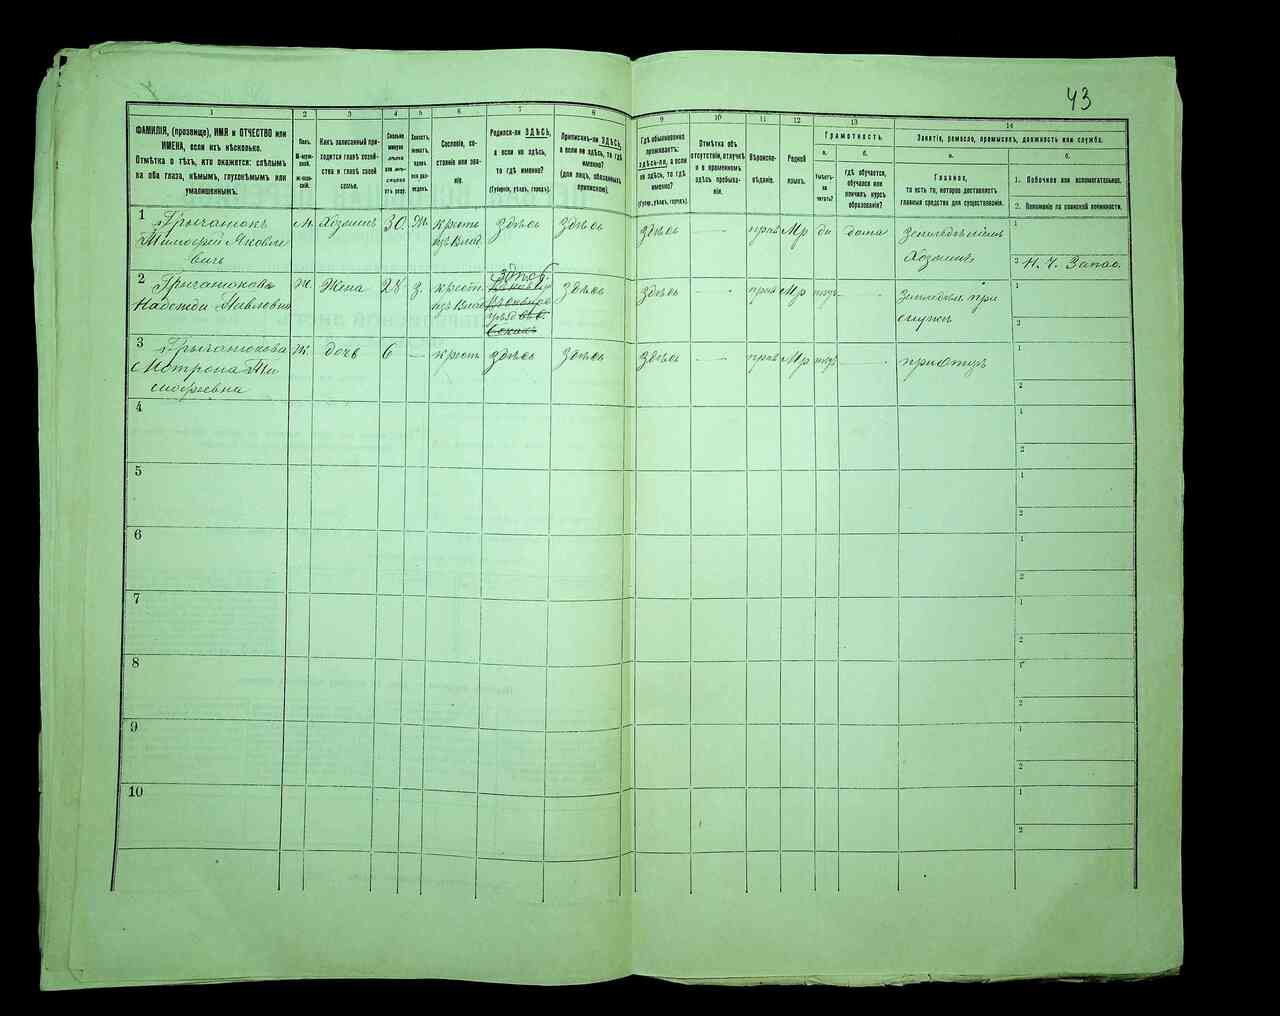 43
1
ФАМИЛІЯ, (прозвище), ИМЯ и ОТЧЕСТВО или
ИМЕНА, если ихъ нѣсколько.
Отмѣтка о тѣхъ, кто окажется: слѣпымъ
на оба глаза, нѣмымъ, глухонѣмымъ или
умалишеннымъ.
2
Полъ.
М-мужской.
Ж-женскій.
3
Какъ записанный приходится
главѣ хозяйства
и главѣ своей
семьи.
4
Сколько
минуло
лѣтъ
5
6
Сословіе, состояніе
или званіе.
7
Родился-ли ЗДѢСЬ,
а если не здѣсь,
то гдѣ именно?
(Губернія, уѣздъ, городъ).
8
Приписанъ-ли ЗДѢСЬ,
а если не здѣсь, то гдѣ
именно?
(для лицъ, обязанныхъ
припискою).
9
Гдѣ обыкновенно
проживаетъ:
здѣсь-ли, а если
не здѣсь, то гдѣ
именно?
(Губер., уѣздъ, городъ).
10
Отмѣтка объ
отсутствіи, отлучкѣ
и о временномъ
здѣсь пребываніи.
11
Вѣроисповѣданіе.
12
Родной
языкъ.
13
Грамотность.
а.
Умѣетъ-ли
читать?
б.
гдѣ обучается,
обучался или
кончилъ курсъ
образованія?
14
Занятіе, ремесло, промыселъ, должность или служба.
а.
Главное,
то есть то, которое доставляетъ
главныя средства для существованія.
б.
1. Побочное или вспомогательное.
2. Положеніе по воинской повинности.
1 Грыганюкъ Тимофей Яковлевичъ М. Хозяинъ 30. Ж. крестн изъ Влад. здѣсь здѣсь здѣсь — прав Мр да дома Земледѣліемъ хозяинъ 1 2 Н. Ч. Запас.
2 Грыганюкова Надежда Павловна Ж. Жена 28 З. крестн изъ Влад здѣсь здѣсь здѣсь — прав Мр — Земледѣл при 1 2
3 Грыганюкова Мотрона Тимофеевна Ж. дочь 6 — крестн здѣсь здѣсь здѣсь — прав Мр — при отцѣ 1 2
4 1 2
5 1 2
6 1 2
7 1 2
8 1 2
9 1 2
10 1 2